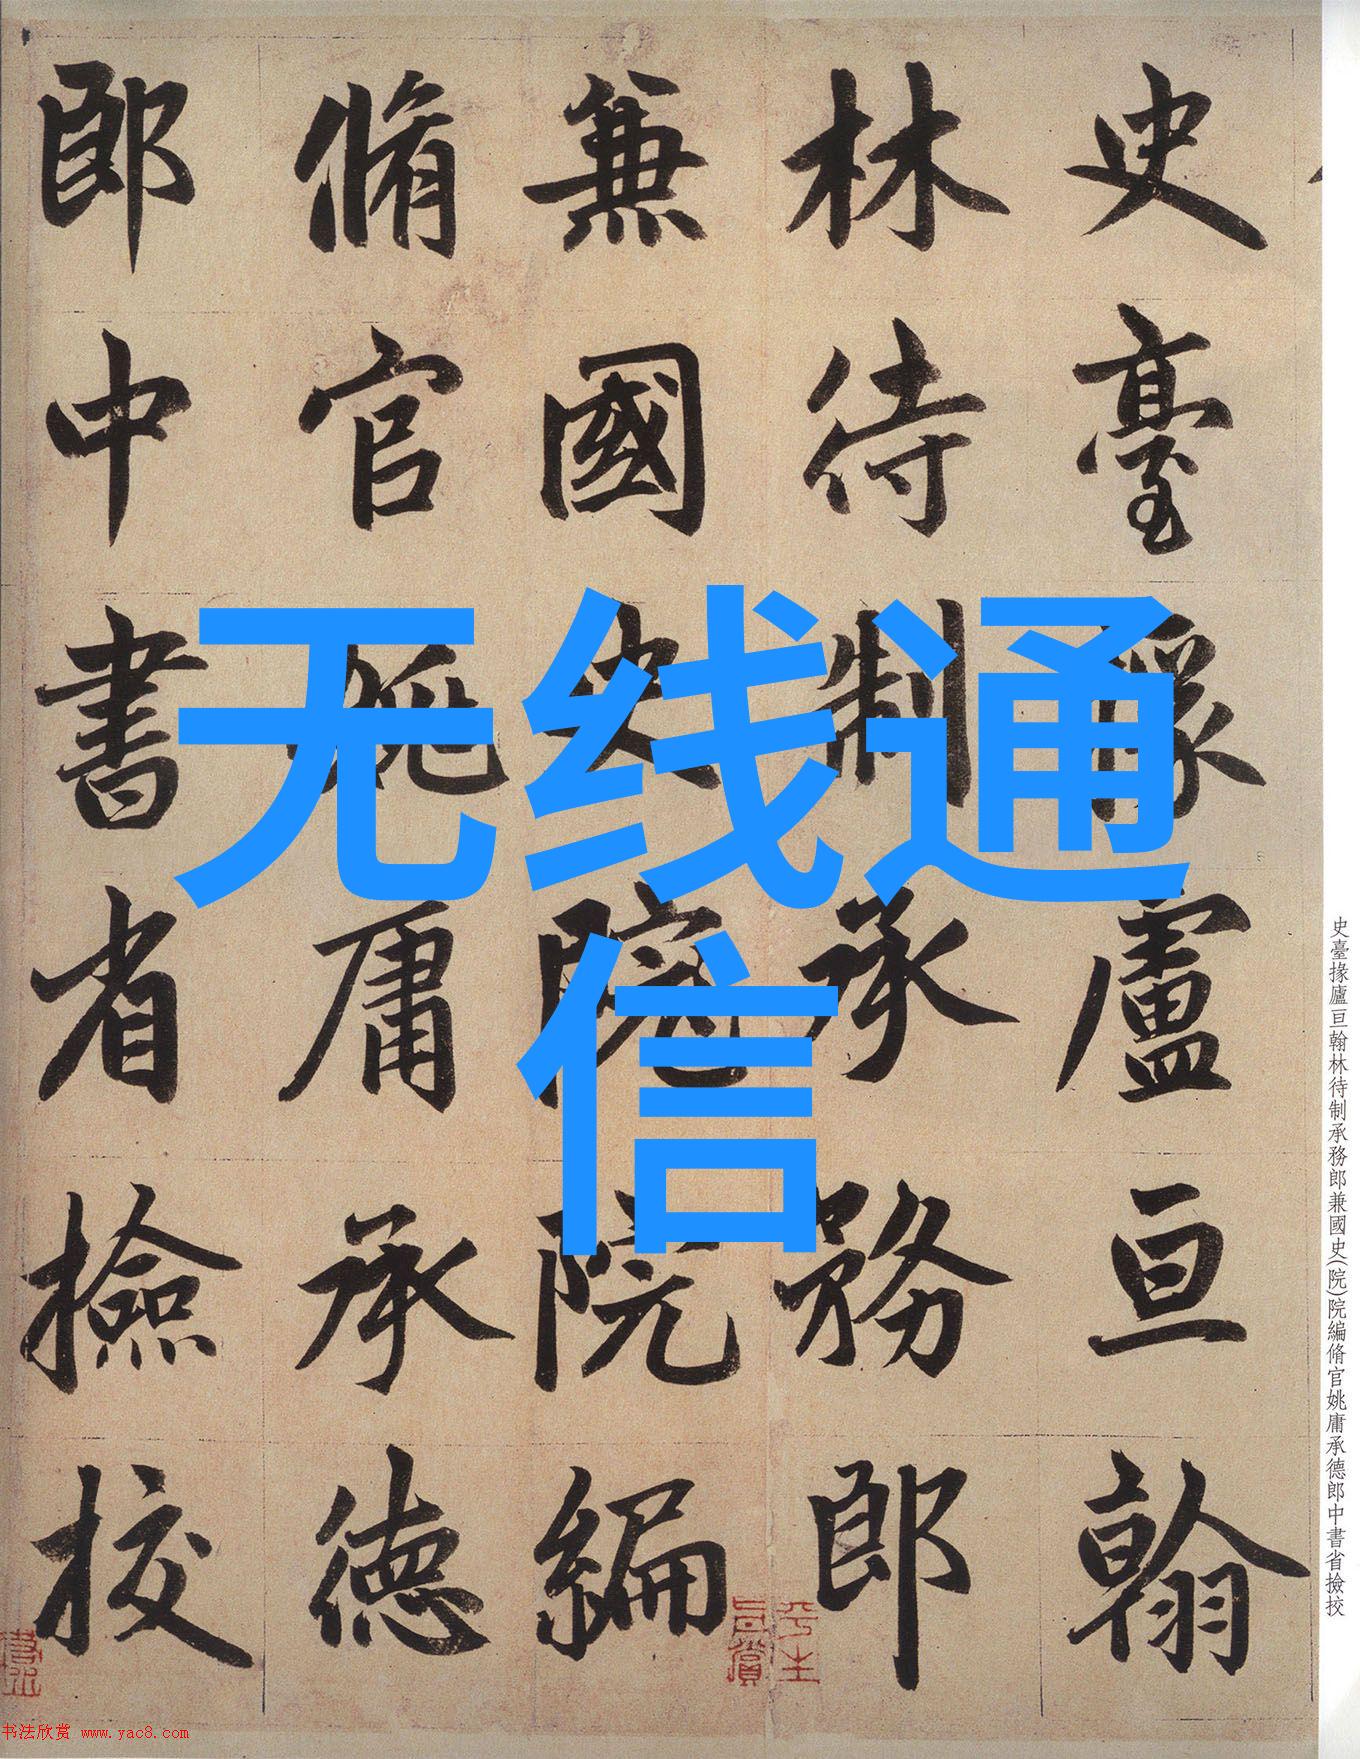 无线通
信
史臺掾盧亘翰
林待制承務郎
兼國史院院編
脩官姚庸承德
郎中書省撿挍
史臺掾廬亘翰林待制承務郎兼國史(院)院編脩官姚庸承德郎中書省撿挍
平生
书法欣赏 www.yac8.com